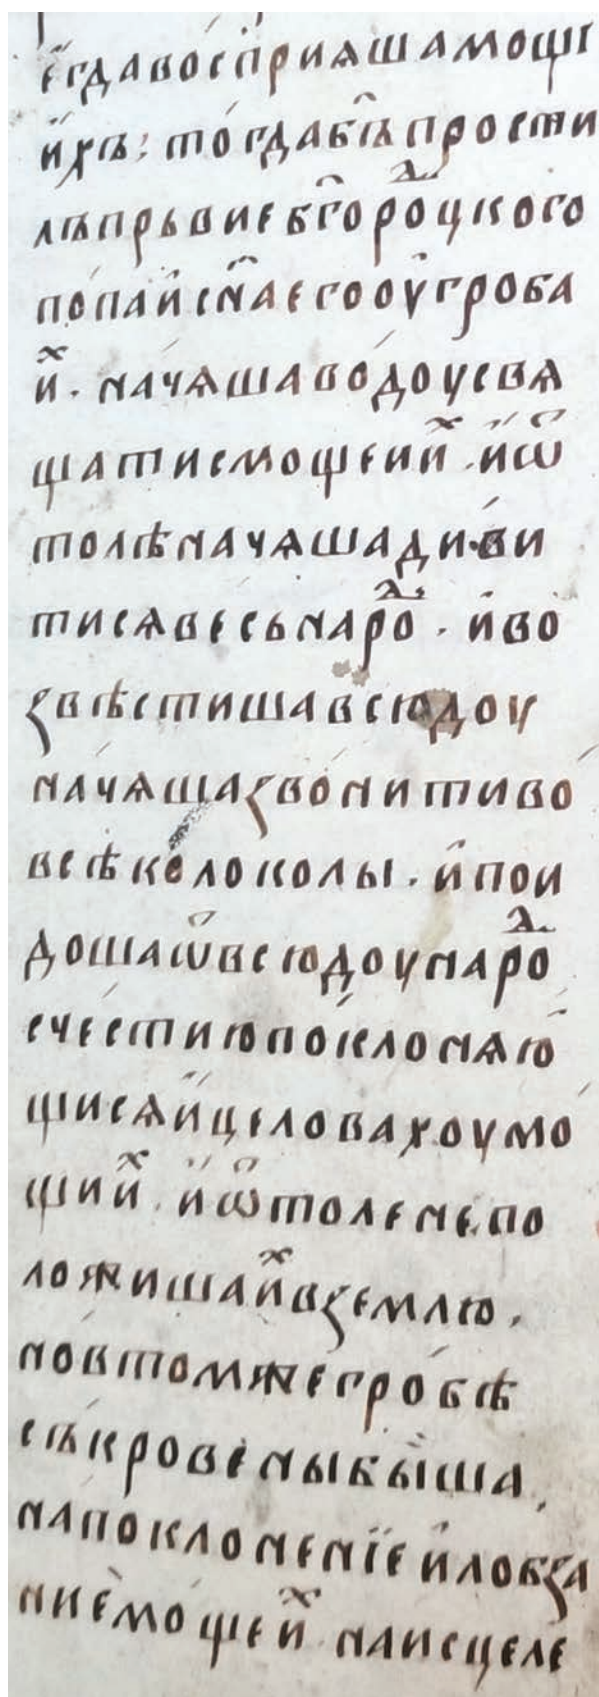 е҆гдавоспрїѧшамощї
и҆хъ: тогдабг҃ъпрости
лъпрьвиебг҃оро́дцкого
попаи҆сн҃аегоꙋгроба
и҆х. начѧшаводоусвѧ
щатисмощеии҆х. и҆ѿ
толѣначѧшадиви
тисѧвесьнаро́д. и҆во
ꙁвѣстишавсюдоу
начѧшаꙁвонитиво
всѣколоколы. и҆пои
дошаѿвсюдоунаро́д
счестиюпоклонѧю
щисѧи҆целовахоумо
щии҆х. и҆ѿтоленепо
ложишаи҆хвꙁемлю.
новтомжегробѣ
съкровеныбыша,
напоклоненїеи҆лобꙁа
ниемощеи҆х наисцеле